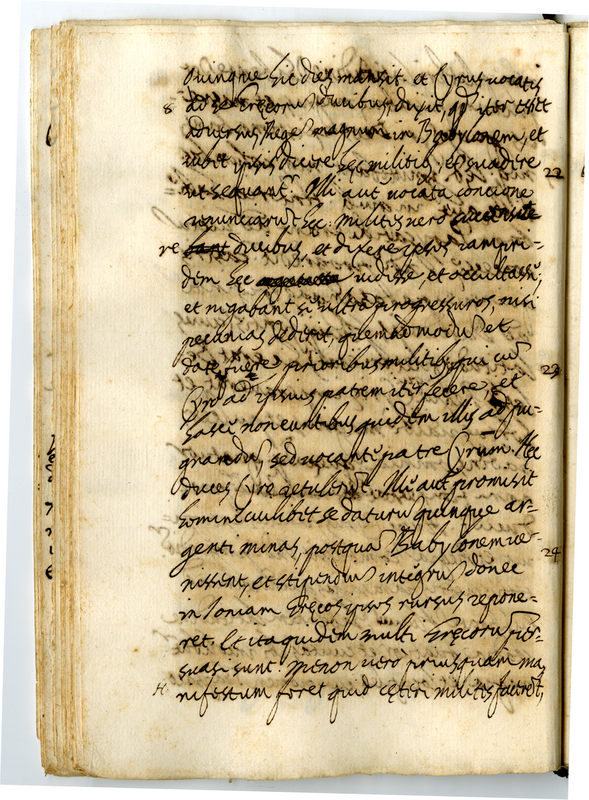 quinque hic dies mansit. et Cyrus vocatis
8 ad se Grecorū ducibus, dixit, qd iter esset
adversus Regē magnum in Babylonem, et
iubet ipsos dicere hęc militib, et suadere 22
ut sequant. Illi aut vocata concione
renunciarūt hęc. milites vero
re ducibus, et dixere ipsos iampri-
dem hęc vidisse, et occultasse,
et negabant se ultra progressuros, nisi
pecunias dederit, quemadmodū et
date fuere prioribus militib, qui cū 23
Cyro ad ipsius patrem iter fecere, et
hasce non euntibus quidem illis ad pu-
gnandū, sed vocante patre Cyrum. Hęc
duces Cyro retulerūt. Ille aut promisit
homini cuilibet se daturū quinque ar-
genti minas, postquā Babylonem ve- 24
nissent, et stipendiū integrū donec
in Ioniam Gręcos ipsos rursus repone-
ret. Et ita quidem multi Gręcorū per-
suasi sunt. Menon vero priusquam ma
H. nifestum foret quid cęteri milites facerēt,